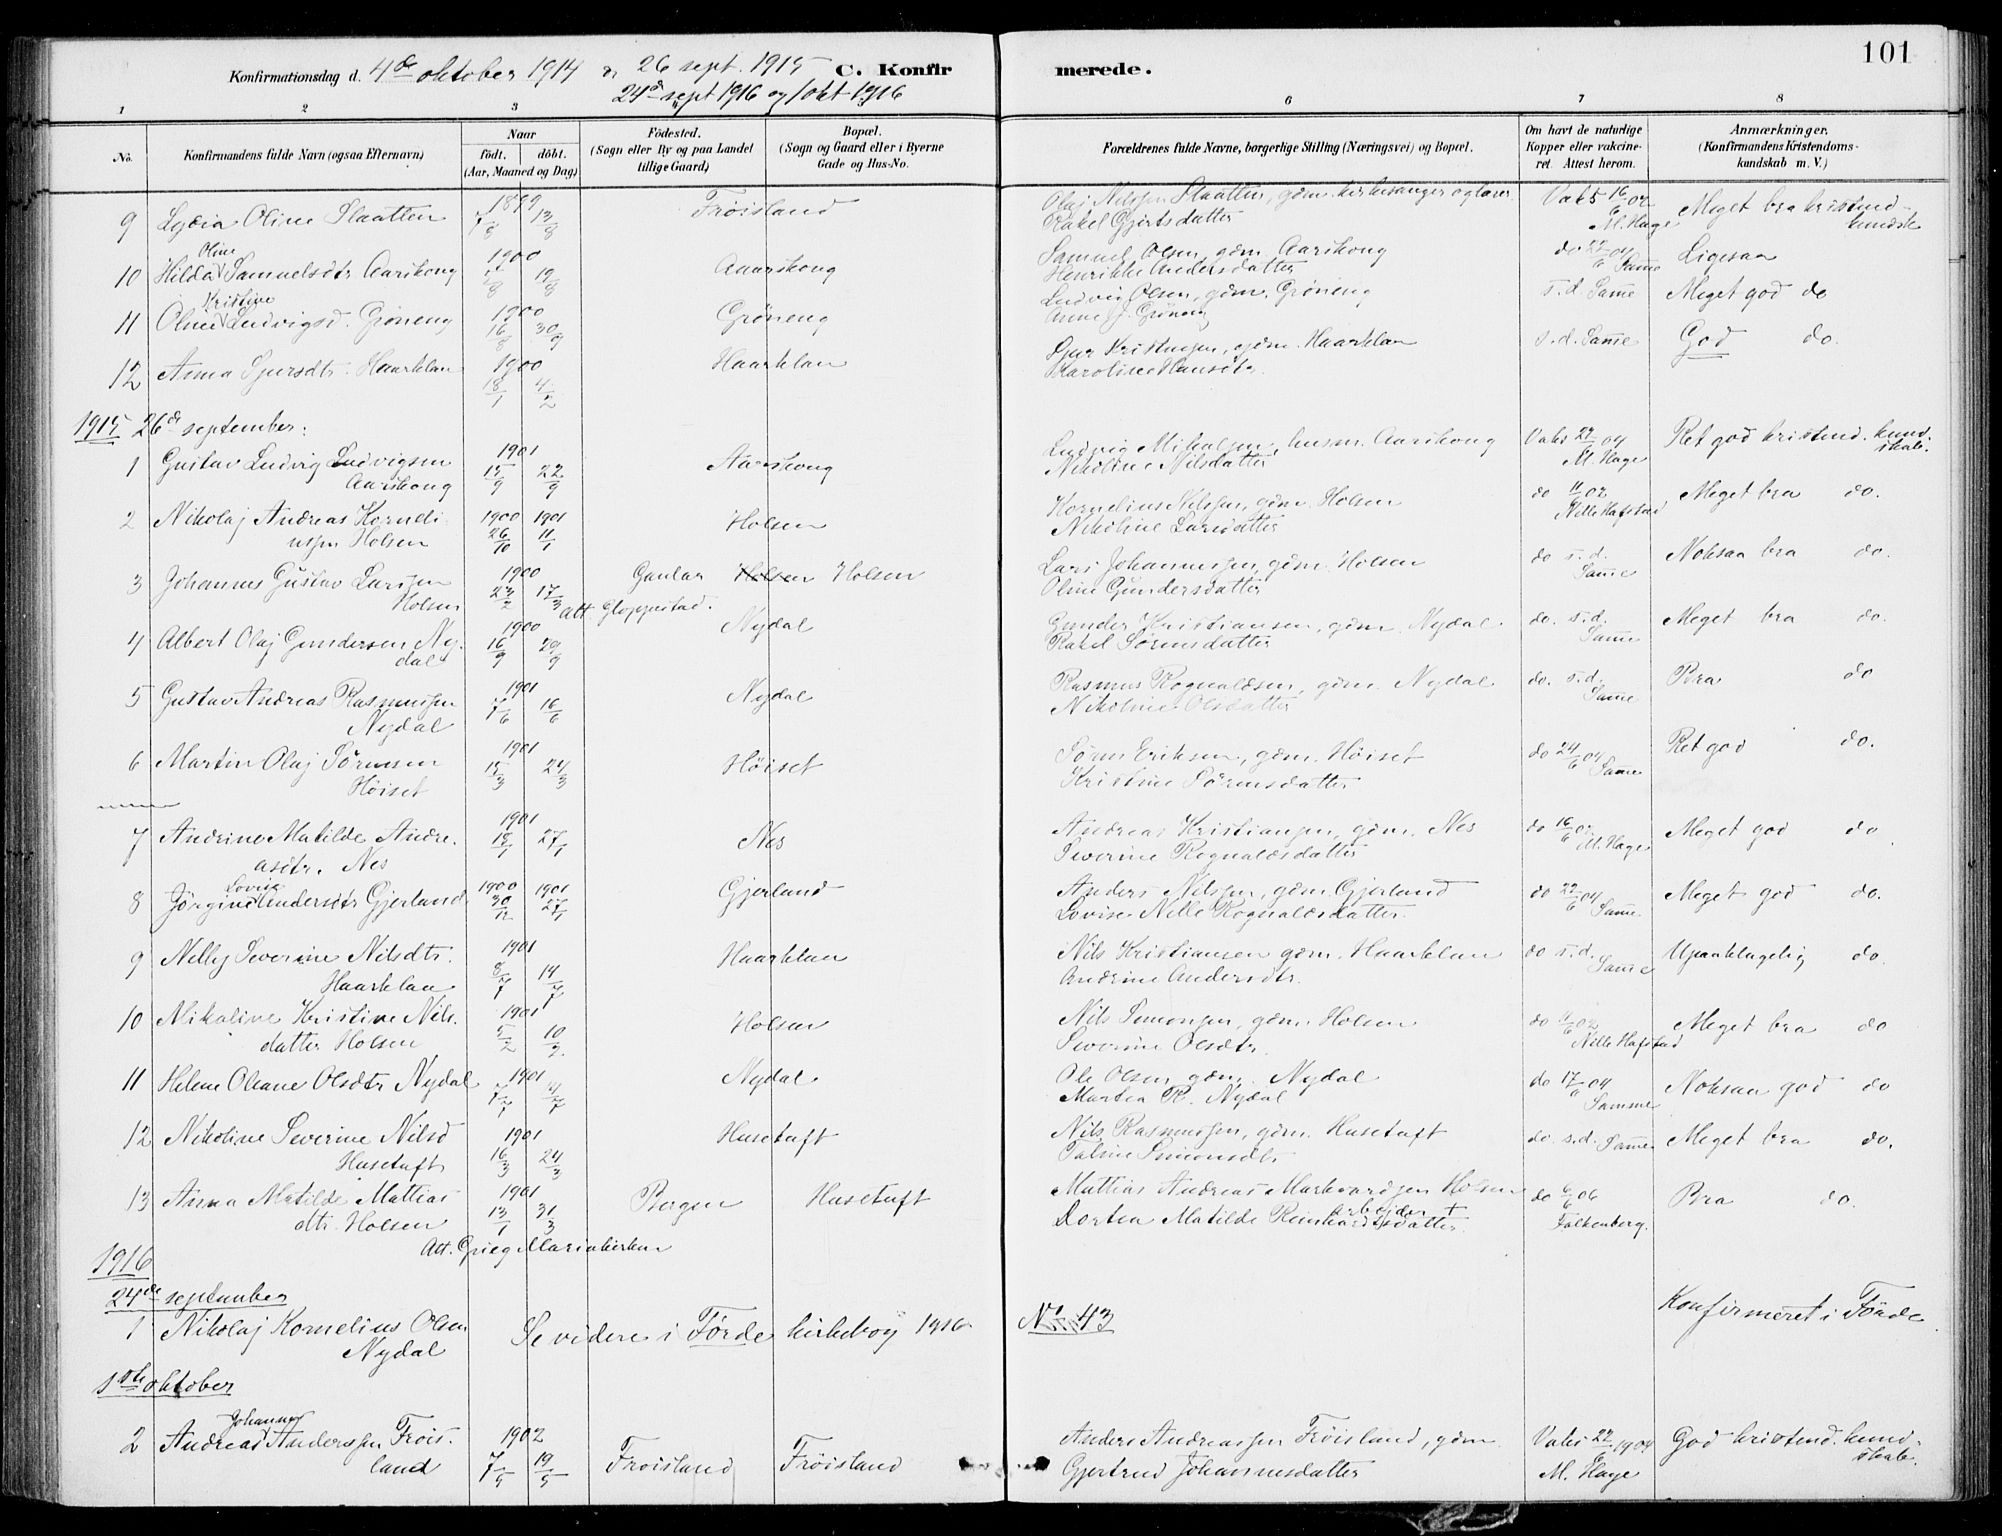 101
Konfirmationsdag d. 4de oktober 1914 26 sept. 1915 C. Konfir merede.
24de sept 1916 og 1 okt 1916
1 2 3 6 7 8
No. Konfirmandens fulde Navn (ogsaa Efternavn) Naar födt. döbt. (Aar, Maaned og Dag) Födested. (Sogn eller By og paa Landet tillige Gaard) Bopæl. (Sogn og Gaard eller i Byerne Gade og Hus-No. Forældrenes fulde Navne, borgerlige Stilling (Næringsvei) og Bopæl. Om havt de naturlige Kopper eller vakcineret. Attest herom. Anmærkninger. (Konfirmandens Kristendomskundskab m. V.)
9 Lydia Oline Slaatten 1899 7/8 13/8 Frøisland Olaj Nilssen Slaatten, gdm. kirkesanger og lærer Vaks 16/6 02 Meget bra kristend-
Rakel Gjertsdatter M. Hage kundsk
10 Hilda Oline Samuelsdtr Aarskong 1900 19/8 Aaarskong Samuel Olsen, gdm. Aarskong do 22/6 04 Same Ligesaa
Henrikke Andersdatter
11 Oline Kristine Ludvigsd. Grøneng 1900 16/8 30/9 Grøneng Ludvig Olsen, gdm. Grøneng s.d. Same Meget god do
Anne J. Grøneng
12 Anna Sjursdtr. Haarklau 1900 18/1 4/2 Haarklau Sjur Kristensen, gdm. Haarklau s.d. Same God do.
Karoline Hansdtr.
1915 26de september:
1 Gustav Ludvig Ludvigsen 1901 15/9 22/9 Aarskong Ludvig Mikalsen, husm. Aarskong Vaks 22/6 04 Ret god kristend. kund-
Aarskong Nikoline Nilsdatter M. Hage skab.
2 Nikolaj Andreas Korneli- 1900 26/10 1901 11/1 Holsen Kornelius Nilssen, gdm. Holsen do 11/ 02 Meget bra do.
ussen Holsen Nikoline Larsdatter Nille Hafstad
3 Johannes Gustav Larssen 1900 23/2 17/3 Gaular Holsen Holsen Lars Johannessen, gdm. Holsen do s.d. Noksaa bra do.
Holsen Att. Gloppestad. Oline Gundersdatter Same
4 Albert Olaj Gundersen Ny- 1900 16/9 29/9 Nydal Gunder Kristiansen, gdm. Nydal do. s.d. Meget bra do.
dal Rakel Sørensdatter Same
5 Gustav Andreas Rasmussen 1901 7/6 16/6 Nydal Rasmus Rognaldsen, gdm. Nydal do. s.d. Bra do
Nydal Nikoline Olsdatter Same
6 Martin Olaj Sørensen 1901 15/3 24/3 Høiset Søren Eriksen, gdm. Høiset do 24/6 04 Ret god do.
Høiset Kristine Sørensdatter Same
7 Andrine Matilde Andre- 1901 18/1 27/1 Nes Andreas Kristiansen, gdm. Nes do 16/6 02 Meget god do
asdtr. Nes Severine Rognaldsdatter M. Hage
8 Jørgine Lovise Andersdtr Gjerland 1900 30/12 1901 27/1 Gjerland Anders Nilssen, gdm. Gjerland do 22/6 04 Meget god do.
Lovise Nille Rognaldsdatter. Same.
9 Nelly Severine Nilsdtr. 1901 8/7 14/7 Haarklau Nils Kristiansen gdm. Haarklau do s.d. Upaaklagelig do.
Haarklau Andrine Andersdtr. Same
10 Mikaline Kristine Nils- 1901 5/2 10/2 Holsen Nils Simonsen, gdm. Holsen do 02 Meget bra do
datter Holsen Severine Olsdtr. Nille Hafstad
11 Helene Oleane Olsdtr Nydal 1901 7/7 Nydal Ole Olsen gdm. Nydal do 17/6 04 Noksaa god do
Martea R. Nydal Samme
12 Nikoline Severine Nilsd 1901 16/3 24/3 Husetuft Nils Rasmussen, gdm. Husetuft do. s.d. Same Meget bra do.
Husetuft Simonsdtr
13 Anna Matilde Mattias 1901 13/1 31/3 Bergen Husetuft Mattias Andreas Markvardsen Holsen do 6/6 06 Bra do.
dtr. Holsen arbeider + Falkenberg.
Att. Grieg Mariakirken Dortea Matilde Reinhardtsdatter.
1916
24de september
1 Nikolaj Kornelius Olsen Se videre i Førde kirkebog 1916 No 43 Konfirmeret i Førde
Nydal
1ste oktober
2 Andreas Johannes Anderssen Frøis- 1902 7/5 19/5 Frøisland Frøisland Anders Andreassen Frøisland, gdm Vaks 22/6 1904 God kristend. kund-
land Gjertrud Johannesdatter M. Hage skab.